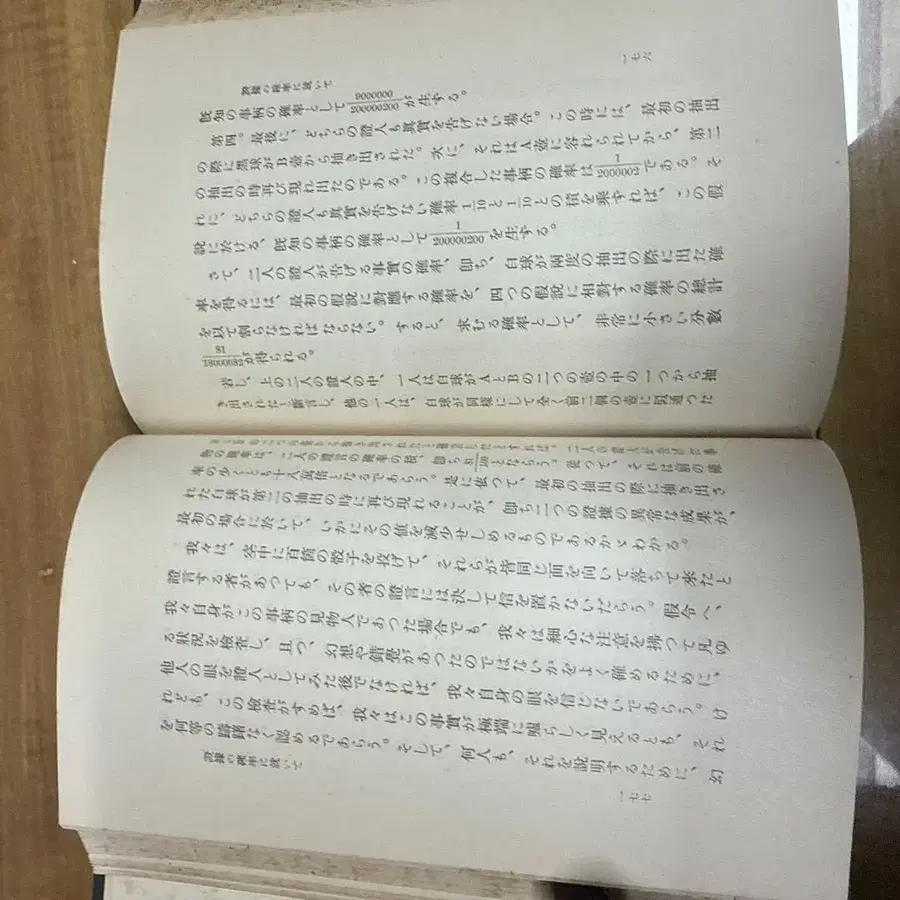 一七六
證據の確率に就いて
既知の事柄の確率として9000000/200000200が生ずる。
第四。最後に、どちらの證人も眞實を告げない場合。この時には、最初の抽出
の際に黑球がB壺から抽き出された。次に、それはA壺に容れられてから、第二
の抽出の時再び現れ出たのである。この複合した事柄の確率は1/2000002である。そ
れに、どちらの證人も眞實を告げない確率1/10と1/10との積を乘ずれば、この假
說に於ける、既知の事柄の確率として1/200000200を生ずる。
さて、二人の證人が告げる事實の確率、卽ち、白球が兩度の抽出の際に出た確
率を得るには、最初の假說に對應する確率を、四つの假說に相對する確率の總計
を以て割らなければならない。すると、求むる確率として、非常に小さい分數
81/18000082が得られる。
若し、上の二人の證人の中、一人は白球がAとBの二つの壺の中の一つから抽
き出されたと斷言し、他の一人は、白球が同樣にして全く前二個の壺に似通つた
二人の證人が告げた事
物の確率は、二人の證言の確率の積、卽ち81/100とならう。從つて、それは前の確
率の少くとも十八萬倍となるであらう。是に依つて、最初の抽出の際に抽き出さ
れた白球が第二の抽出の時に再び現れることが、卽ち二つの證據の異常な成果が、
最初の場合に於いて、いかにその値を減少せしめるものであるかゞわかる。
我々は、空中に百箇の骰子を投げて、それらが皆同じ面を向いて落ちて來たと
證言する者があつても、その者の證言には決して信を置かないだらう。假令へ、
我々自身がこの事柄の見物人であつた場合でも、我々は細心な注意を拂つて凡ゆ
る狀況を檢査し、且つ、幻想や錯覺があつたのではないかをよく確めるために、
他人の眼を證人としてみた後でなければ、我々自身の眼を信じないであらう。け
れども、この檢査がすめば、我々はこの事實が極端に珍らしく見えるとも、それ
を何等の躊躇なく認めるであらう。そして、何人も、それを說明するために、幻
證據の確率に就いて
一七七